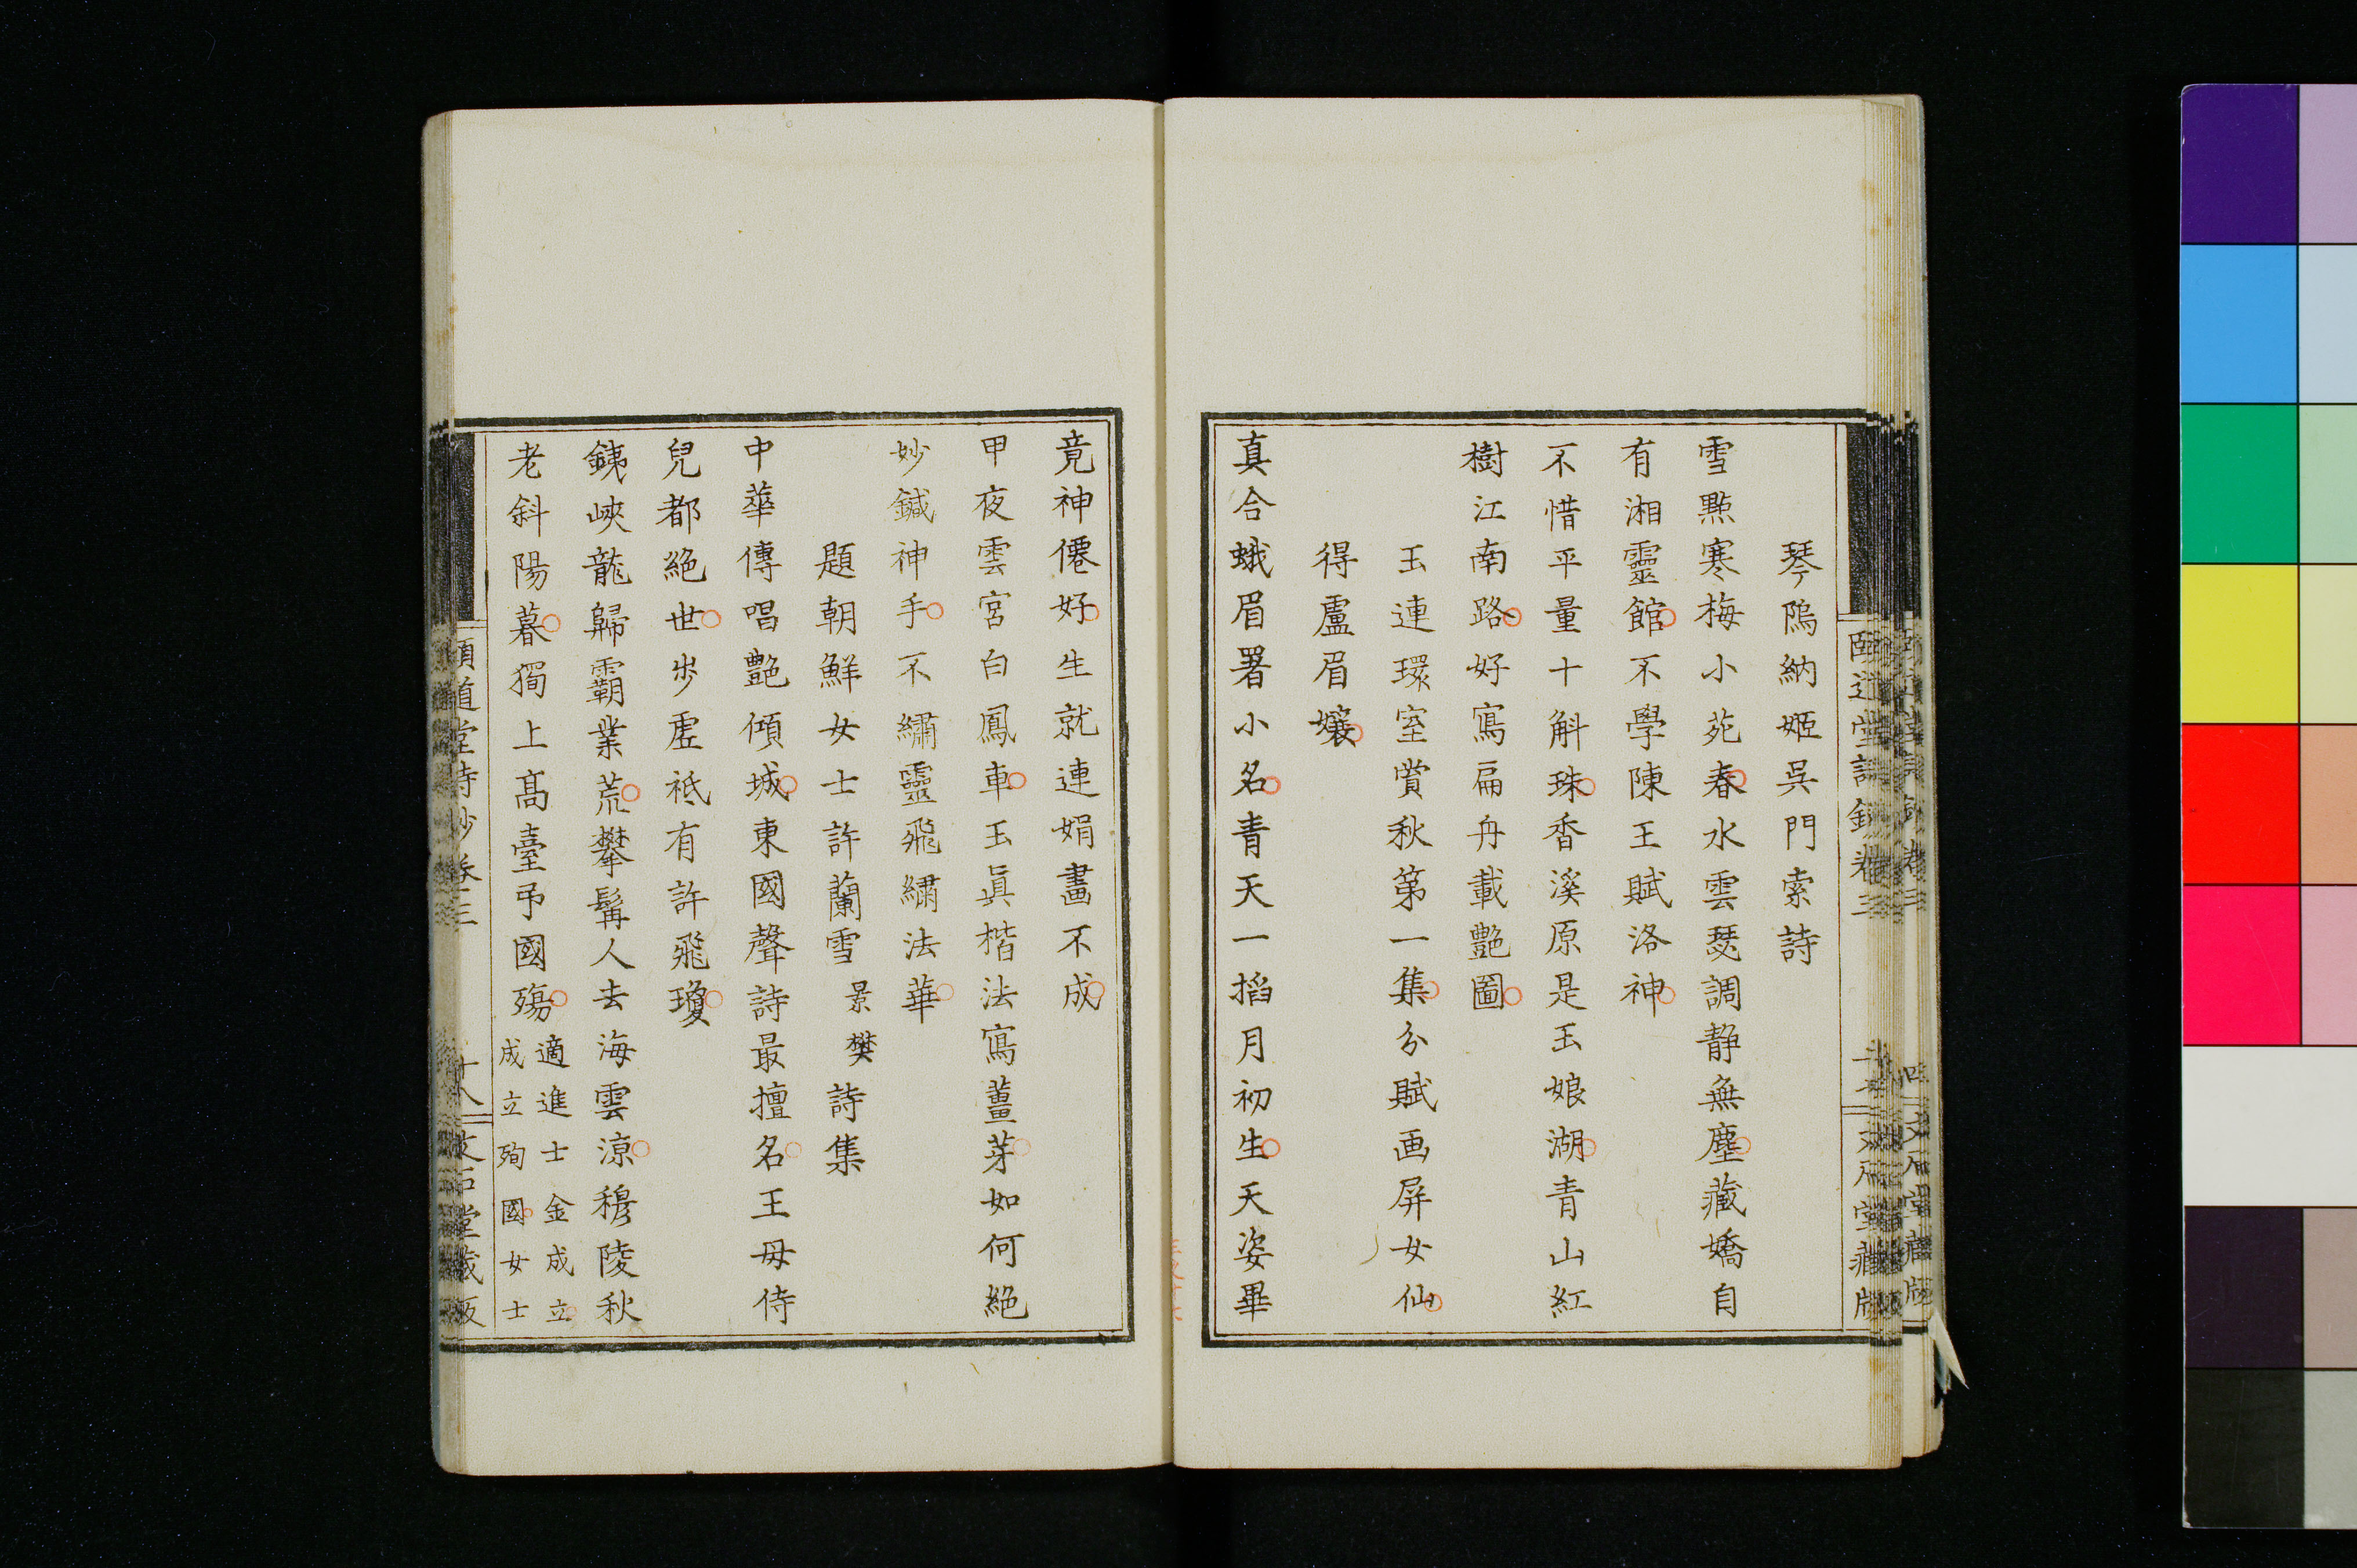 琴隖納姬吳門索詩
雪點寒梅小苑春水雲瑟調静無塵藏嬌自
有湘靈館不學陳王賦洛神
不惜平量十斛珠香溪原是玉娘湖青山紅
樹江南路好寫扁舟載艷圖
玉連環室賞秋第一集分賦画屏女仙
得盧眉孃
真合蛾眉署小名青天一掐月初生天姿畢
竟神僊好生就連娟畫不成
甲夜雲宮白鳳車玉眞楷法寫薑芽如何絕
妙鍼神手不繡靈飛繡法華
題朝鮮女士許蘭雪景樊詩集
中華傳唱艷傾城東國聲詩最擅名王母侍
兒都絕世步虛祗有許飛瓊
銕峽龍歸霸業荒攀髯人去海雲涼穆陵秋
老斜陽暮獨上髙臺弔國殤適進士金成立
成立殉國女士
頤道堂詩鈔卷三 十八 文石堂藏版